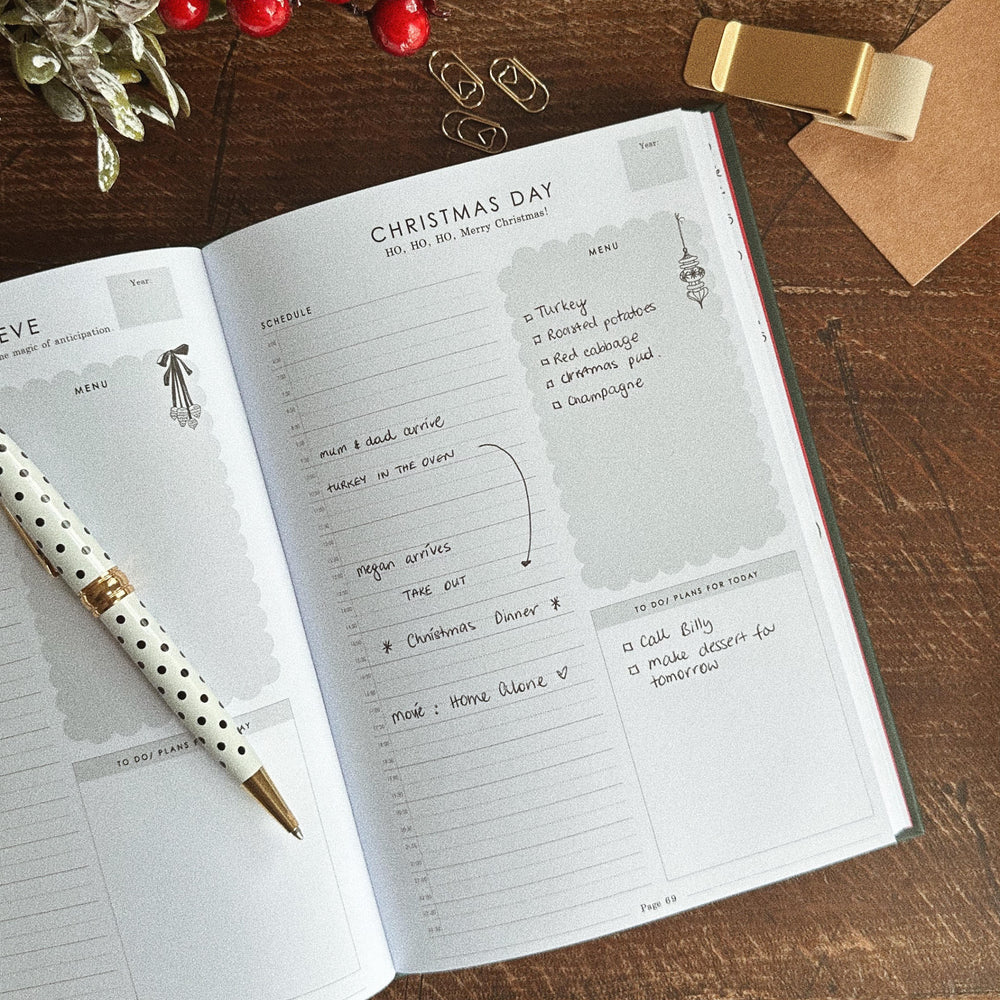 EVE
he magic of anticipation.
Year:
MENU
TO DO/ PLANS FOR TODAY
CHRISTMAS DAY
HO, HO, HO, Merry Christmas!
Year:
SCHEDULE
mum & dad arrive
TURKEY IN THE OVEN
megan arrives
TAKE OUT
* Christmas Dinner *
movie : Home Alone ♡
MENU
□ Turkey
□ Roasted potatoes
□ Red cabbage
□ christmas pud.
□ Champagne
TO DO/ PLANS FOR TODAY
□ Call Billy
□ make dessert for
tomorrow
Page 69